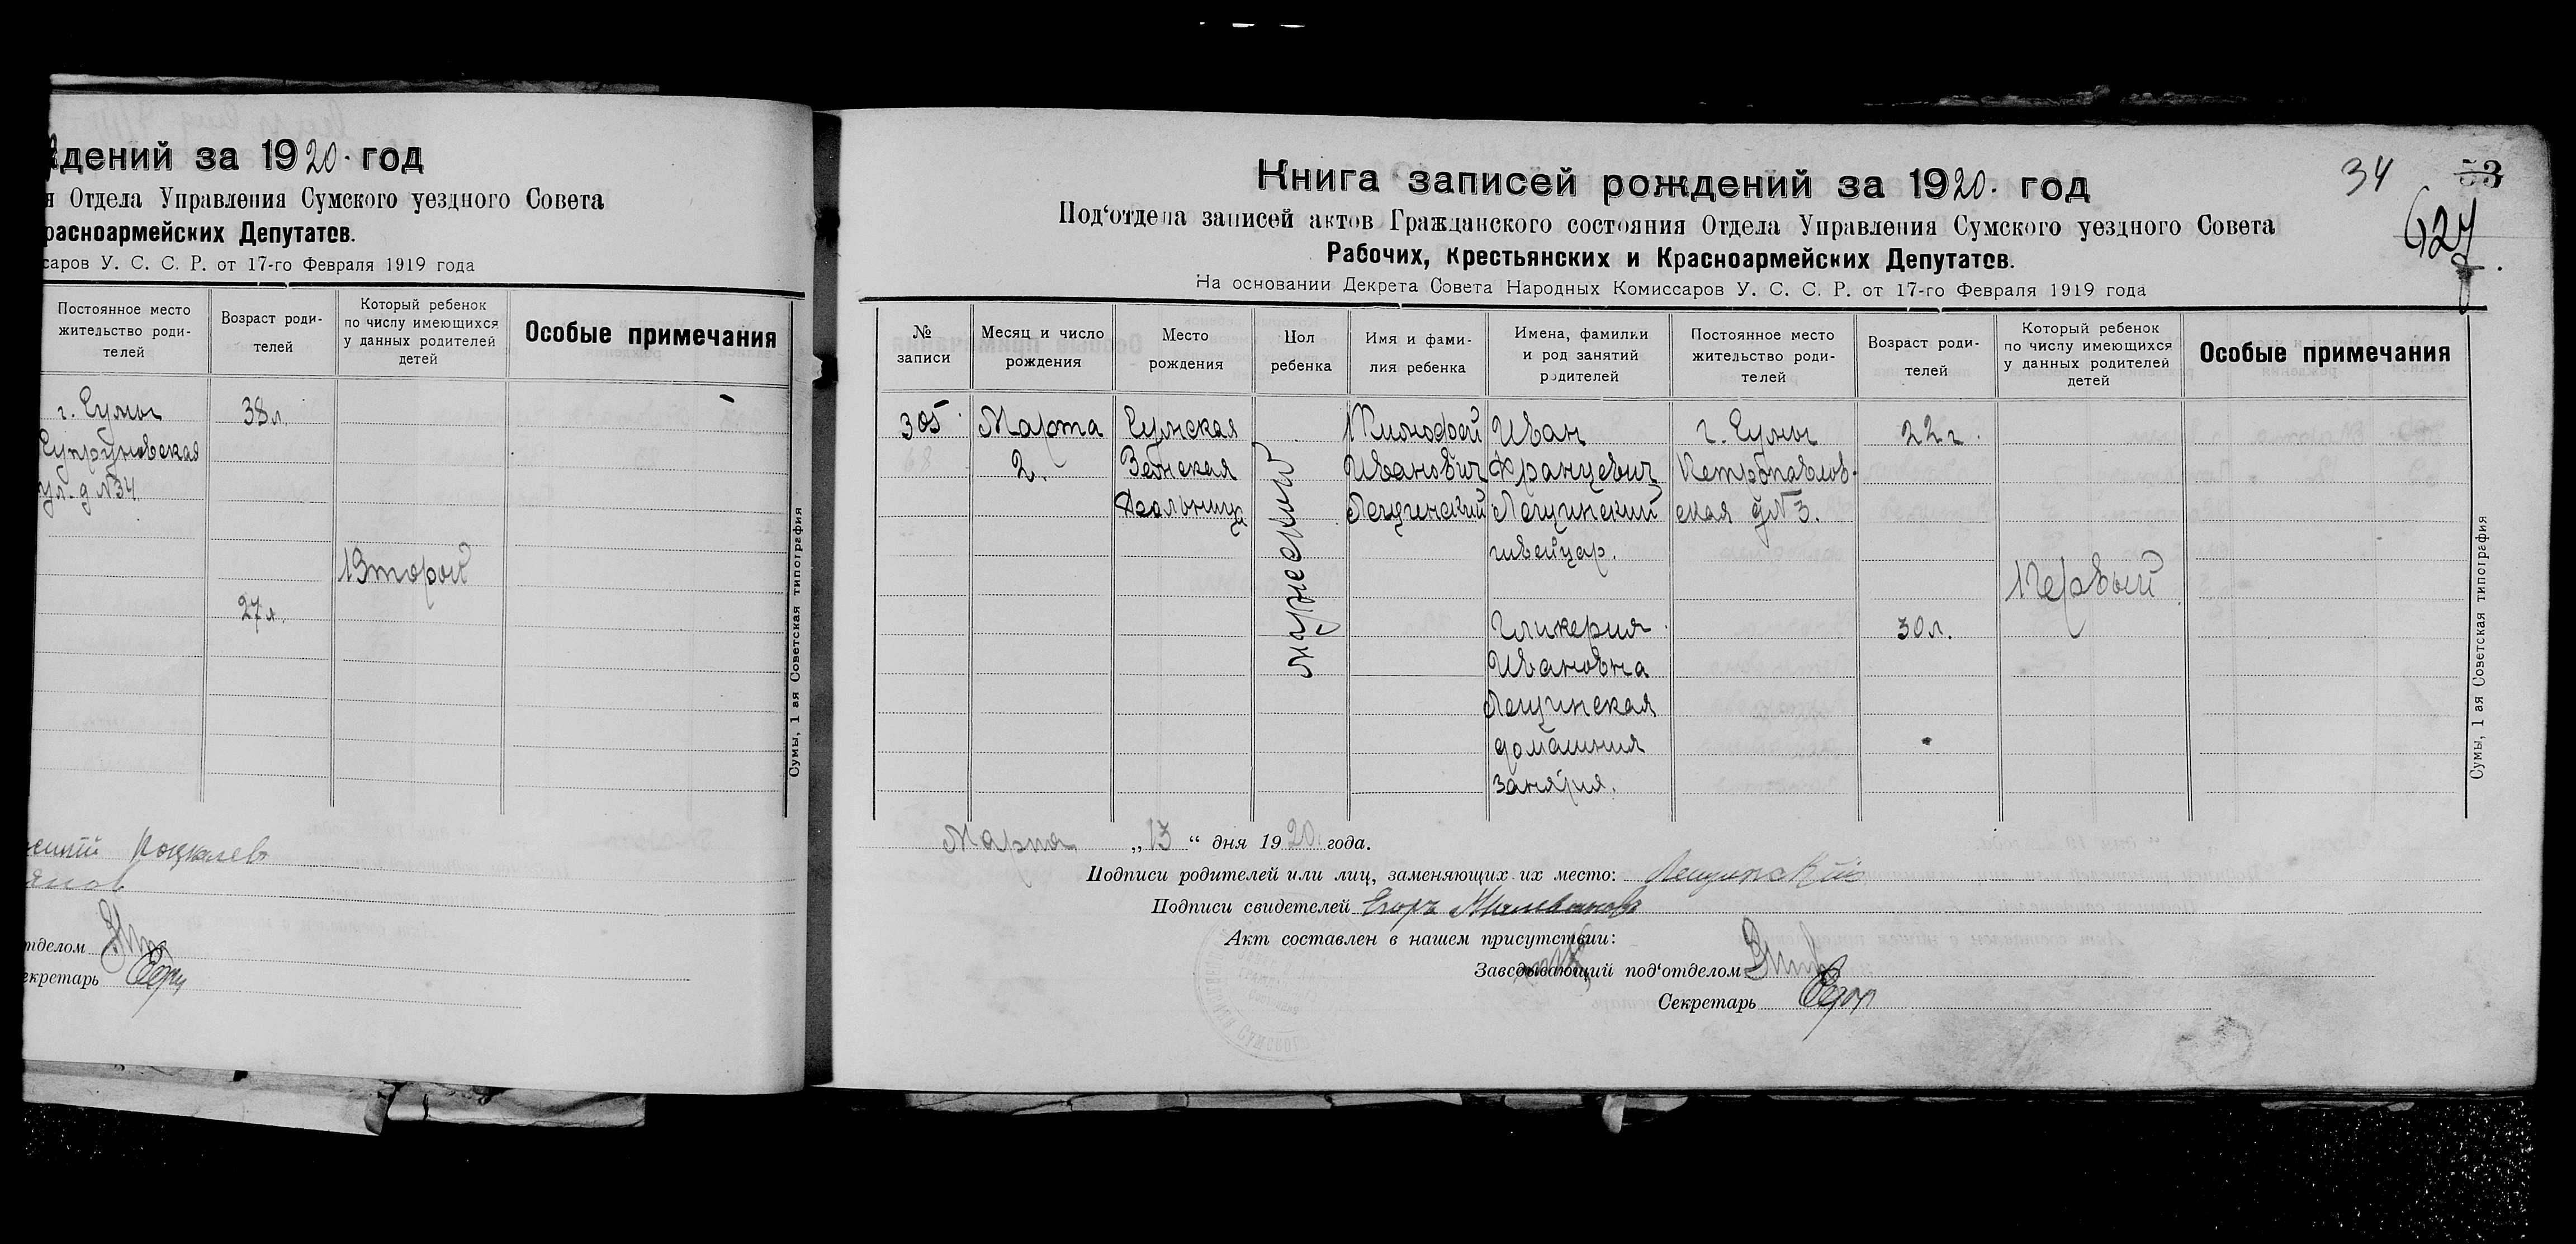 дений за 1920. год
Отдела Управления Сумского уездного Совета
расноармейских Депутатов.
саров У. С. С. Р. от 17-го Февраля 1919 года
Постоянное место
жительство роди-
телей
Возраст роди-
телей
Который ребенок
по числу имеющихся
у данных родителей
детей
Особые примечания
г. Сумы
38 л.
Супруновская
ул. д №34.
Второй
27 л.
Сумы, 1 ая Советская типография
тделом
екретарь
34
53
627
Книга записей рождений за 1920. год
Под‘отдела записей актов Гражданского состояния Отдела Управления Сумского уездного Совета
Рабочих, Крестьянских и Красноармейских Депутатов.
На основании Декрета Совета Народных Комиссаров У. С. С. Р. от 17-го Февраля 1919 года
№
записи
Месяц и число
рождения
Место
рождения
Пол
ребенка
Имя и фами-
лия ребенка
Имена, фамилии
и род занятий
родителей
Постоянное место
жительство роди-
телей
Возраст роди-
телей
Который ребенок
по числу имеющихся
у данных родителей
детей
Особые примечания
305
Марта
2.
Сумская
Земская
мужеский
Иванович
Лещинский
Иван
Францевич
Лещинский
швейцар.
Гликерия
Ивановна
Лещинская
домашния
занятия.
г. Сумы
Петропавлов-
ская д №3.
22 г.
30 л.
Первый
Сумы, 1 ая Советская типография
Марта „13“ дня 1920 года.
Подписи родителей или лиц, заменяющих их место: Лещинский
Подписи свидетелей Егоръ
Акт составлен в нашем присутствии:
Заведывающий под‘отделом
Секретарь